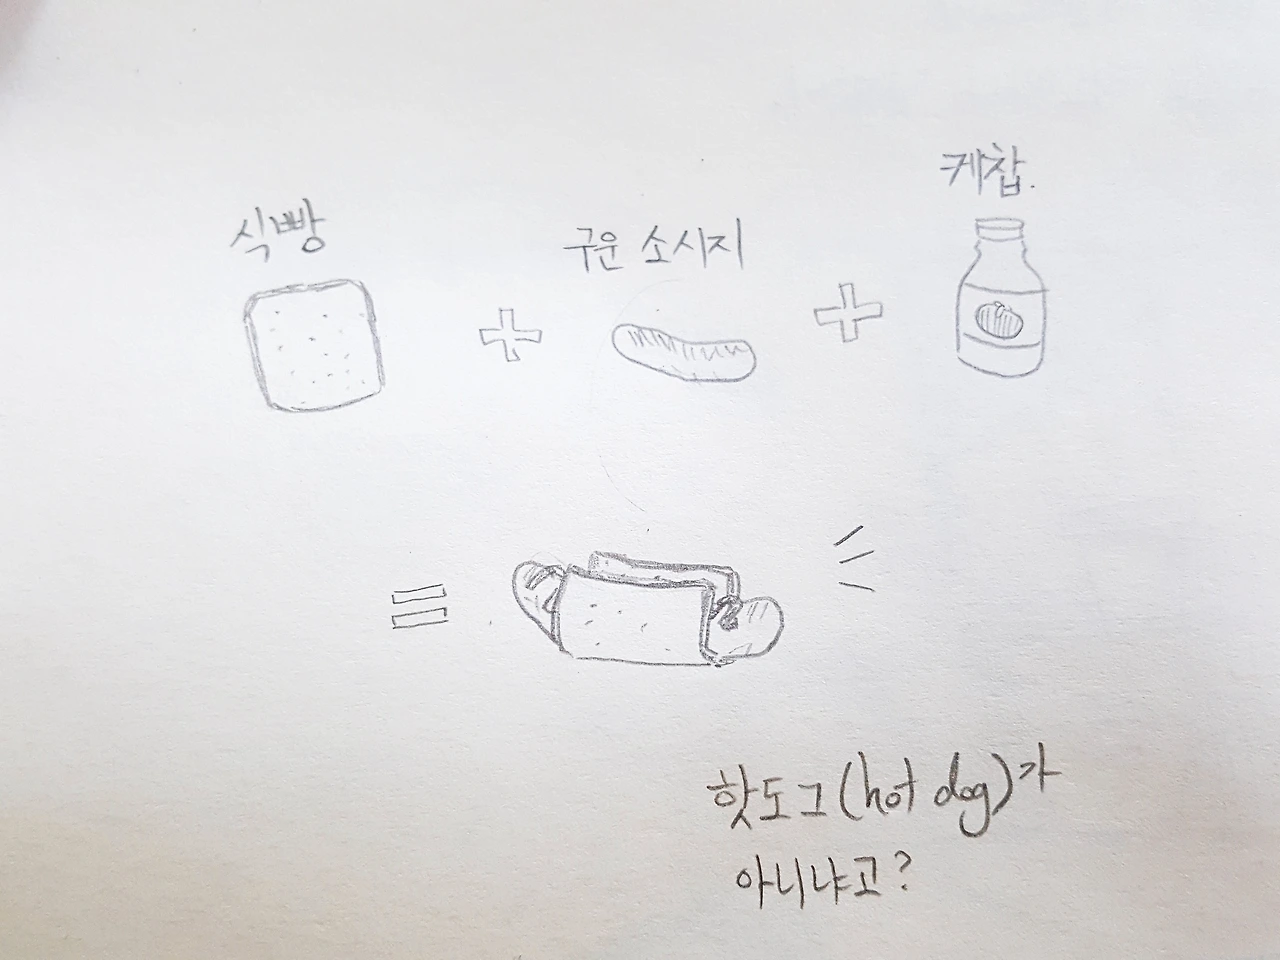 식빵
구운 소시지
케찹.
핫도그(hot dog)가
아니냐고?